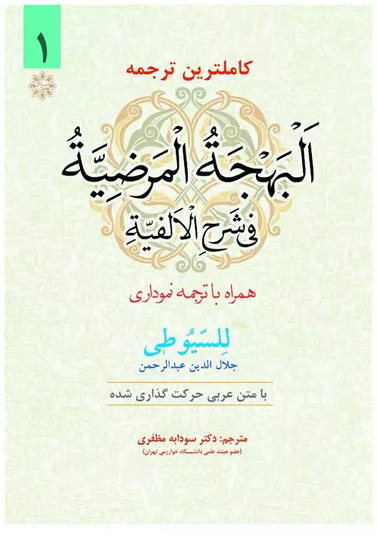 ۱
کاملترین ترجمه
اَلْبَهْجَةُ الْمَرضِيَّةُ
فی شَرحِ الْاَلفيَّةِ
همراه با ترجمه نموداری
لِلسّیُوطی
جلال الدین عبدالرحمن
با متن عربی حرکت گذاری شده
مترجم: دکتر سودابه مظفری
(عضو هیئت علمی دانشگاه خوارزمی تهران)